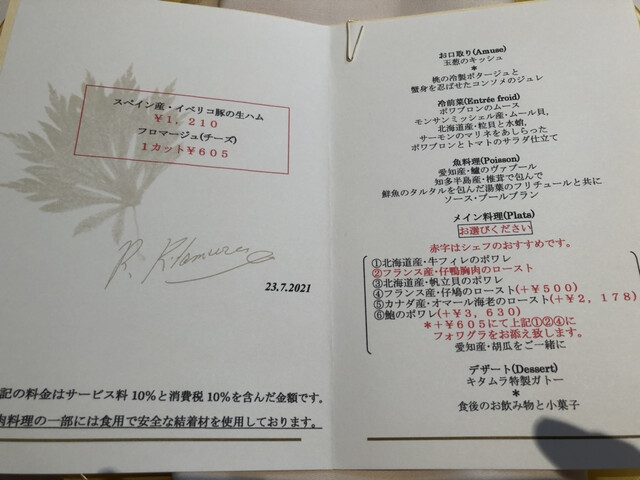 スペイン産・イベリコ豚の生ハム
￥１，２１０
フロマージュ(チーズ)
１カット￥６０５
R. Kitamura
23.7.2021
記の料金はサービス料 10%と消費税 10%を含んだ金額です。
肉料理の一部には食用で安全な結着材を使用しております。
お口取り(Amuse)
玉葱のキッシュ
＊
桃の冷製ポタージュと
蟹身を忍ばせたコンソメのジュレ
冷前菜(Entrée froid)
ポワブロンのムース
モンサンミッシェル産・ムール貝,
北海道産・粒貝と水蛸,
サーモンのマリネをあしらった
ポワブロンとトマトのサラダ仕立て
魚料理(Poisson)
愛知産・鱸のヴァプール
知多半島産・椎茸で包んで
鮮魚のタルタルを包んだ湯葉のフリチュールと共に
ソース・ブールブラン
メイン料理(Plats)
お選びください
赤字はシェフのおすすめです。
①北海道産・牛フィレのポワレ
②フランス産・仔鴨胸肉のロースト
③北海道産・帆立貝のポワレ
④フランス産・仔鳩のロースト(+￥500)
⑤カナダ産・オマール海老のロースト(+￥2,178)
⑥鮑のポワレ(+￥3,630)
＊+￥605にて上記①②④に
フォワグラをお添え致します。
愛知産・胡瓜をご一緒に
デザート(Dessert)
キタムラ特製ガトー
＊
食後のお飲み物と小菓子